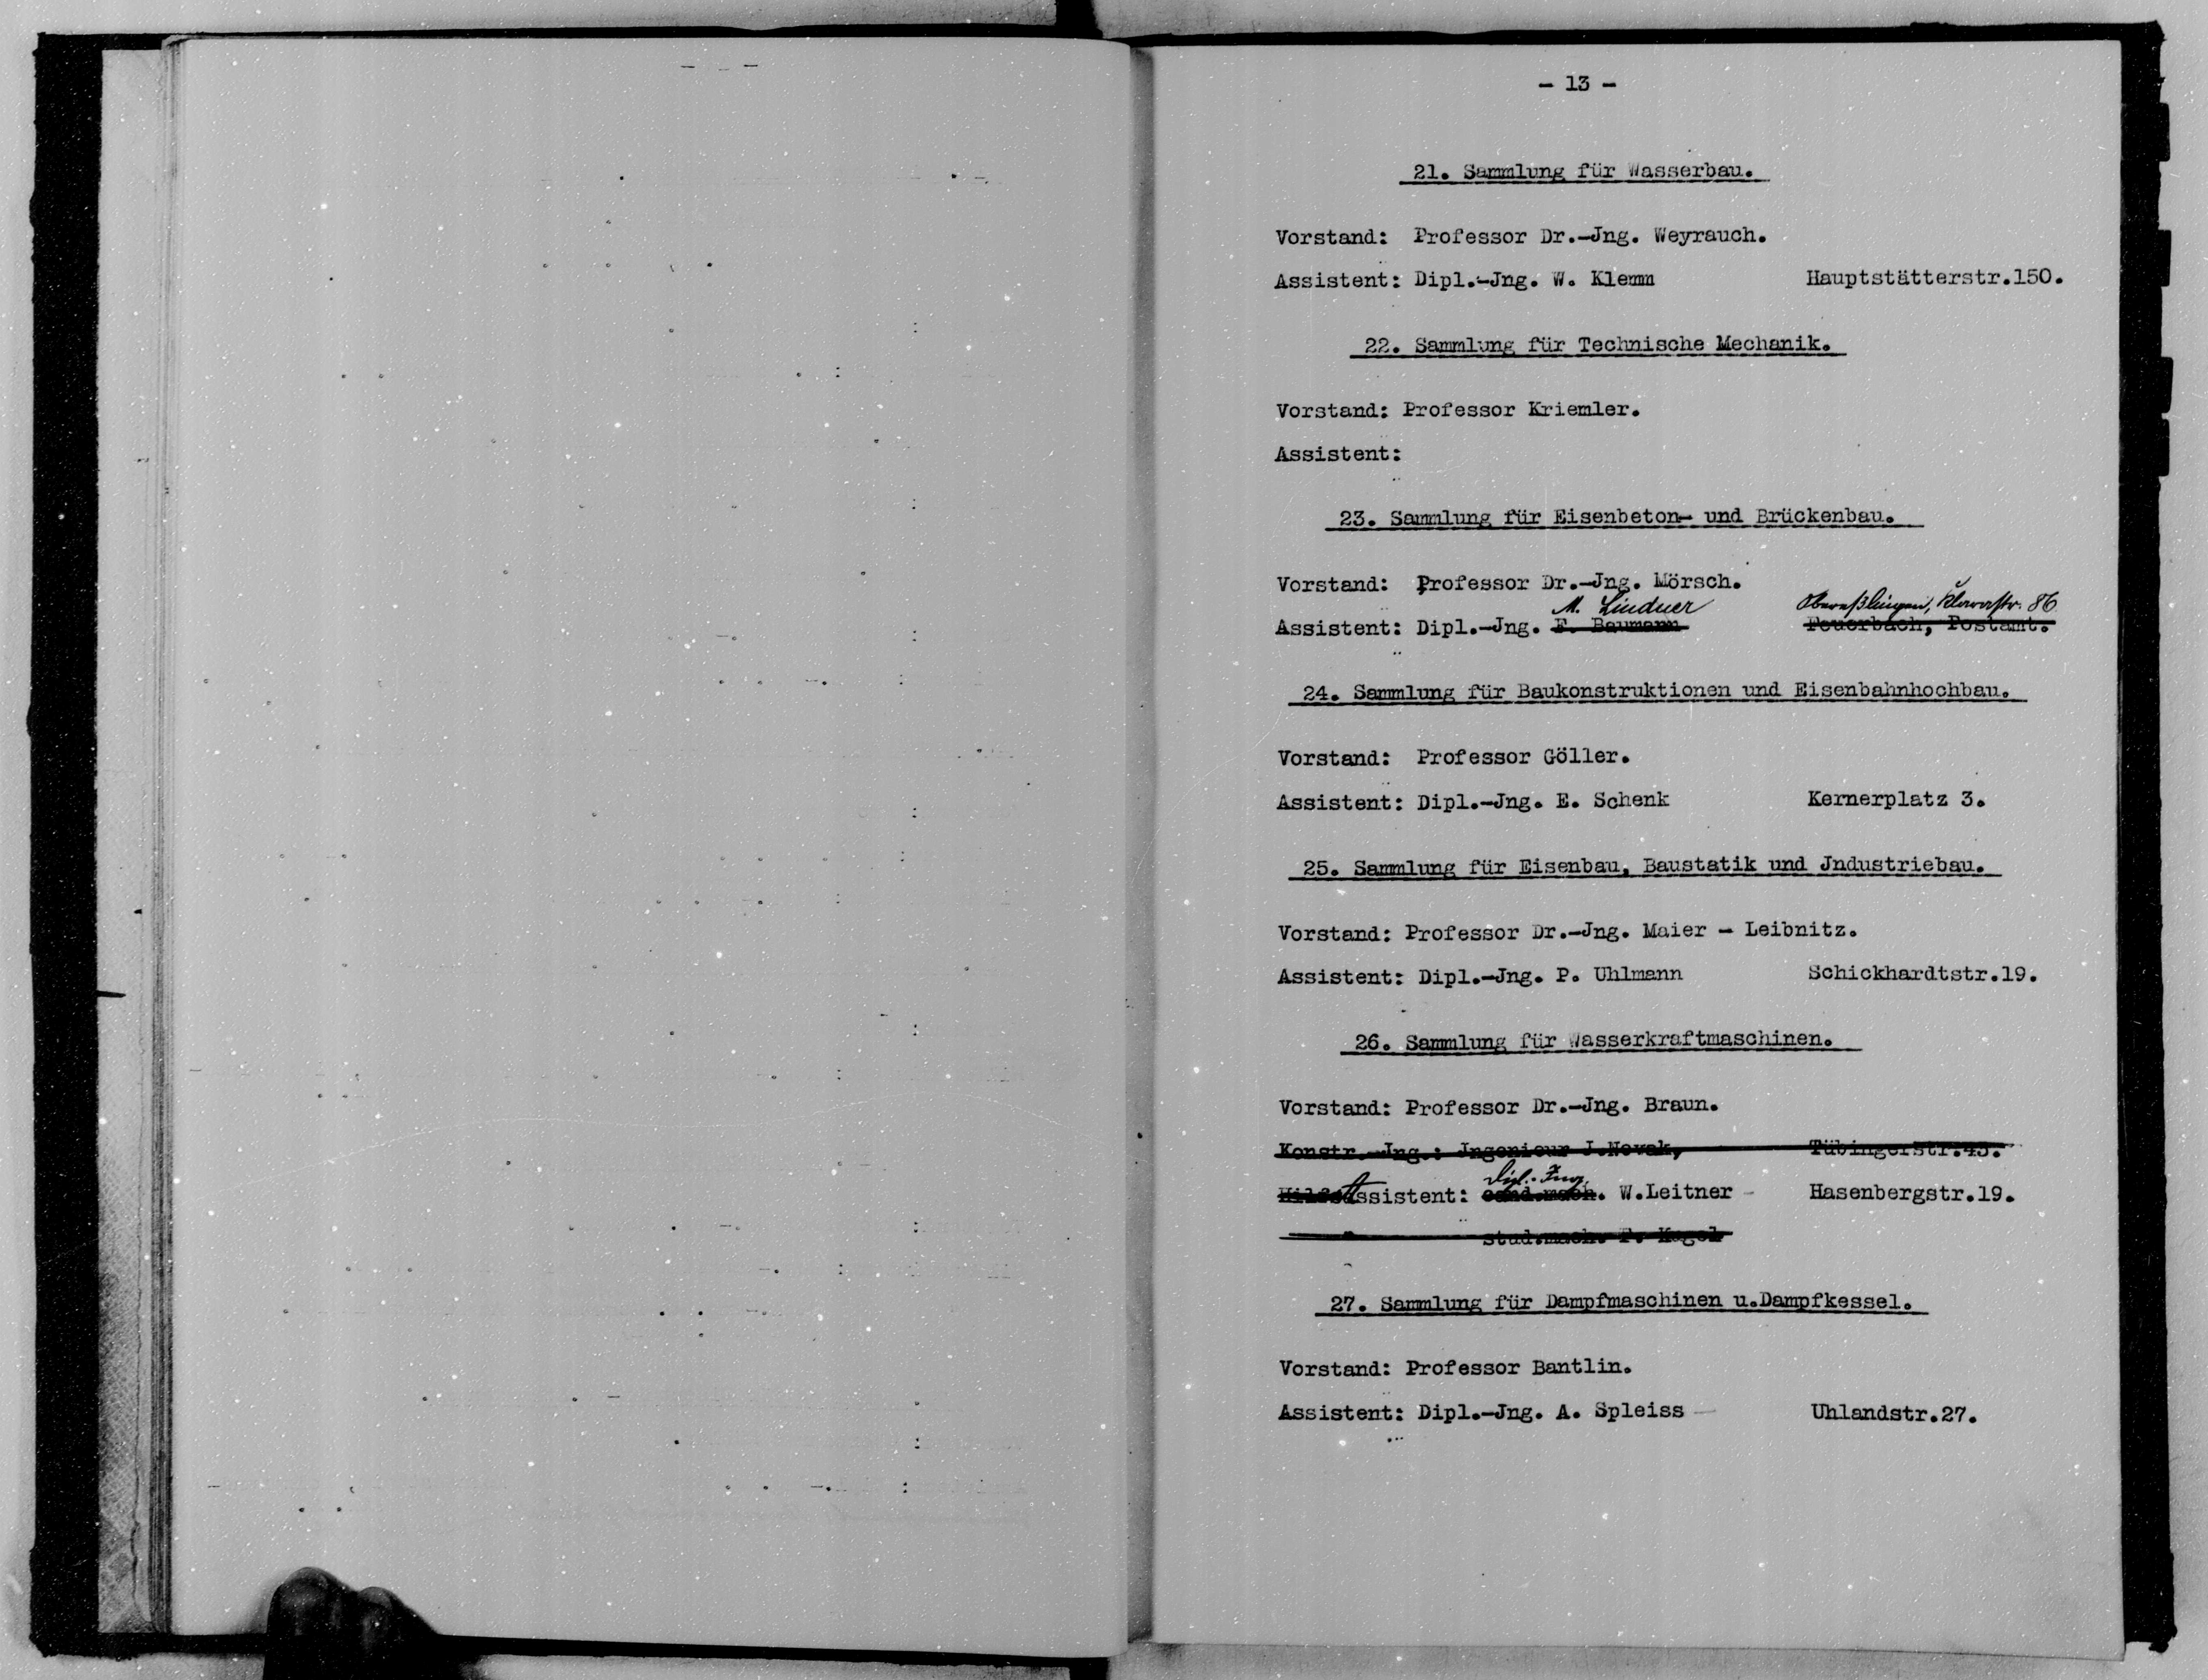 - 13 -
21. Sammlung für Wasserbau.
Vorstand: Professor Dr.-Jng. Weyrauch.
Assistent: Dipl.-Jng. W. Klemm Hauptstätterstr.150.
22. Sammlung für Technische Mechanik.
Vorstand: Professor Kriemler.
Assistent:
23. Sammlung für Eisenbeton- und Brückenbau.
Vorstand: Professor Dr.-Jng. Mörsch.
M. Lindner Obereßlingen, 86
Assistent: Dipl.-Jng. F. Baumann Feuerbach, Postamt.
24. Sammlung für Baukonstruktionen und Eisenbahnhochbau.
Vorstand: Professor Göller.
Assistent: Dipl.-Jng. E. Schenk Kernerplatz 3.
25. Sammlung für Eisenbau, Baustatik und Jndustriebau.
Vorstand: Professor Dr.-Jng. Maier - Leibnitz.
Assistent: Dipl.-Jng. P. Uhlmann Schickhardtstr.19.
26. Sammlung für Wasserkraftmaschinen.
Vorstand: Professor Dr.-Jng. Braun.
Konstr.-Jng.: Jngenieur J.Novak, Tübingerstr.43.
Dipl.-Ing.
Hilfsassistent: cand.mach. W.Leitner - Hasenbergstr.19.
" stud.mach. T. Kogel
27. Sammlung für Dampfmaschinen u.Dampfkessel.
Vorstand: Professor Bantlin.
Assistent: Dipl.-Jng. A. Spleiss - Uhlandstr.27.